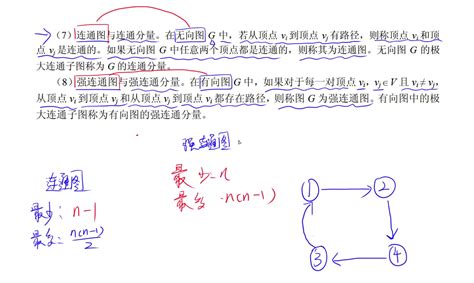 (7) 连通图与连通分量。在无向图 G 中，若从顶点 vᵢ 到顶点 vⱼ 有路径，则称顶点 vᵢ 和顶
点 vⱼ 是连通的。如果无向图 G 中任意两个顶点都是连通的，则称其为连通图。无向图 G 的极
大连通子图称为 G 的连通分量。
(8) 强连通图与强连通分量。在有向图 G 中，如果对于每一对顶点 vᵢ, vⱼ∈V 且 vᵢ≠vⱼ,
从顶点 vᵢ 到顶点 vⱼ 和从顶点 vⱼ 到顶点 vᵢ 都存在路径，则称图 G 为强连通图。有向图中的极
大连通子图称为有向图的强连通分量。
强连通图
最少: n
最多: n(n-1)
连通图
最少: n-1
最多: n(n-1)/2
1 2
3 4